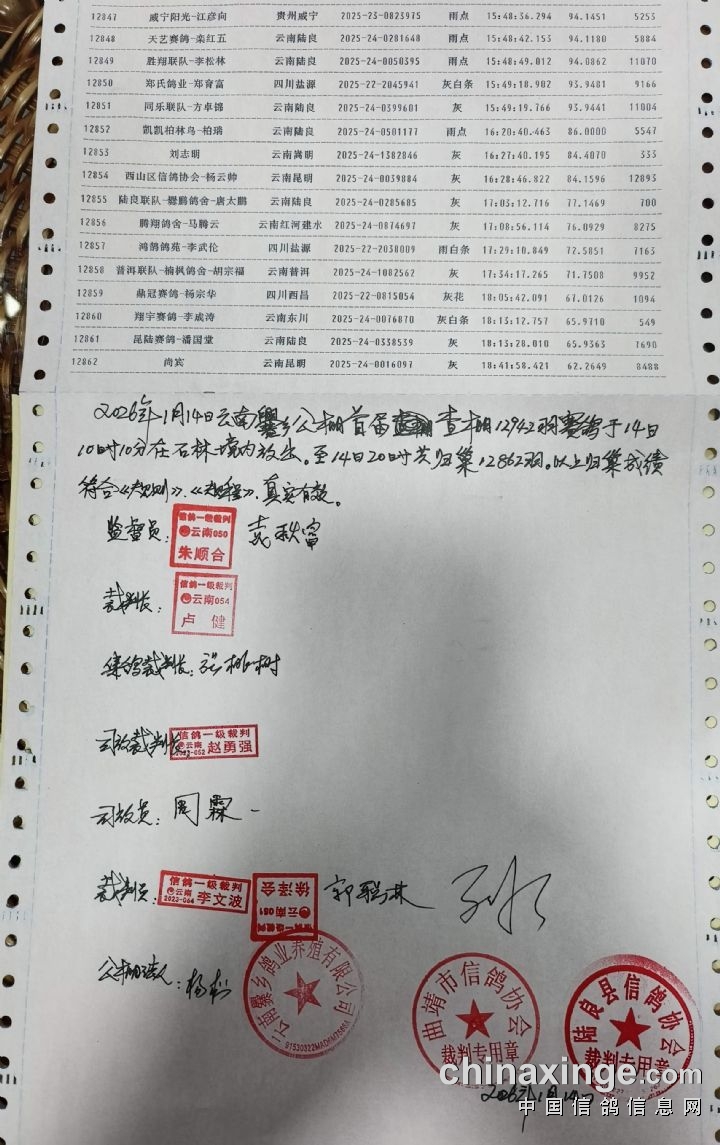 12847 威宁阳光-江彦向 贵州威宁 2025-23-0823975 雨点 15:48:36.294 94.1451 5253
12848 天艺赛鸽-栾红五 云南陆良 2025-24-0281648 雨点 15:48:42.153 94.1180 5884
12849 胜翔联队-李松林 云南陆良 2025-24-0050395 雨点 15:48:49.012 94.0862 11070
12850 郑氏鸽业-郑育富 四川盐源 2025-22-2045941 灰白条 15:49:18.902 93.9481 9166
12851 同乐联队-方卓锦 云南陆良 2025-24-0399601 灰 15:49:19.766 93.9441 11004
12852 凯凯柏林鸟-柏瑞 云南陆良 2025-24-0501177 雨点 16:20:40.463 86.0000 5547
12853 刘志明 云南嵩明 2025-24-1382846 灰 16:27:40.195 84.4070 333
12854 西山区信鸽协会-杨云帅 云南昆明 2025-24-0039884 灰 16:28:46.822 84.1596 12893
12855 陆良联队-麟鹏鸽舍-唐太鹏 云南陆良 2025-24-0285685 灰 17:03:12.716 77.1469 700
12856 腾翔鸽舍-马腾云 云南红河建水 2025-24-0874697 灰 17:08:56.114 76.0929 8275
12857 鸿鹄鸽苑-李武伦 四川盐源 2025-22-2038009 雨白条 17:29:10.849 72.5851 7163
12858 普洱联队-楠枫鸽舍-胡宗福 云南普洱 2025-24-1082562 灰 17:34:17.265 71.7508 9952
12859 鼎冠赛鸽-杨宗华 四川西昌 2025-22-0815054 灰花 18:05:42.091 67.0126 1094
12860 翔宇赛鸽-李成涛 云南东川 2025-24-0076870 灰白条 18:13:12.757 65.9710 549
12861 昆陆赛鸽-潘国堂 云南陆良 2025-24-0338539 灰 18:13:28.010 65.9363 7690
12862 尚宾 云南昆明 2025-24-0016097 灰 18:41:58.421 62.2649 8488
2026年1月14日云南爨乡公棚首届查棚12942羽赛鸽于14日
10时10分在石林境内放出。至14日20时共归巢12862羽。以上归巢成绩
符合《规则》、《规程》,真实有效。
监督员: 信鸽一级裁判 云南050 朱顺合
裁判长: 信鸽一级裁判 云南054 卢健
集鸽裁判长:
司放裁判长: 信鸽一级裁判 云南 2023-052 赵勇强
司放员: 周霖
裁判员: 信鸽一级裁判 云南 2023-064 李文波 信鸽一级裁判 云南051 徐泽会
公棚法人: 杨
云南爨乡鸽业养殖有限公司
曲靖市信鸽协会 裁判专用章
陆良县信鸽协会 裁判专用章
2026年1月14日
chinaxinge.com
中国信鸽信息网